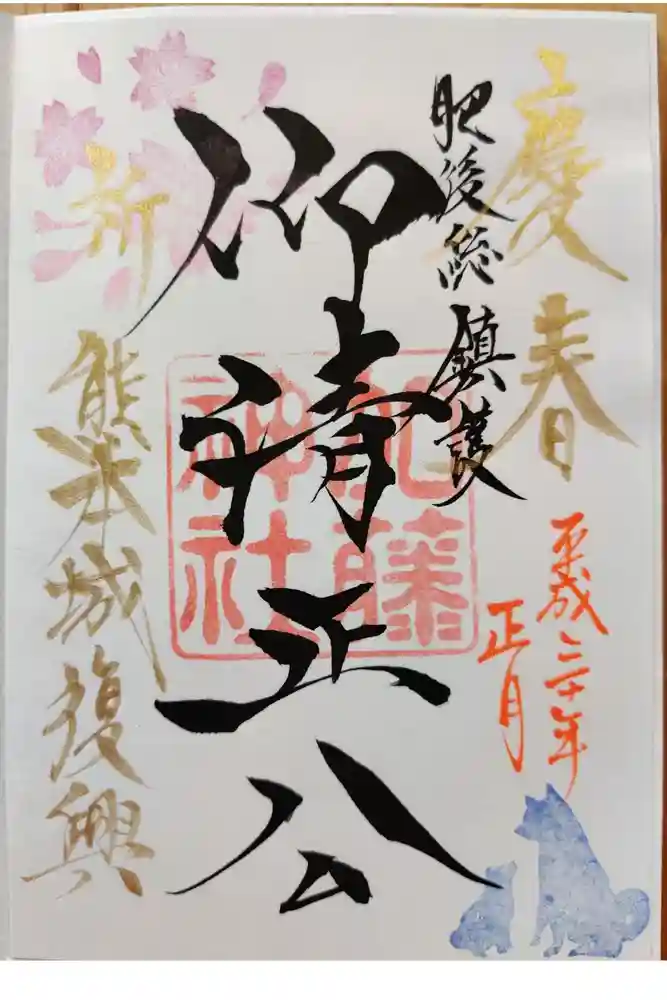 慶春
平成三十年
正月
肥後総鎮護
仰清正公
加藤
神社
祈
熊本城復興